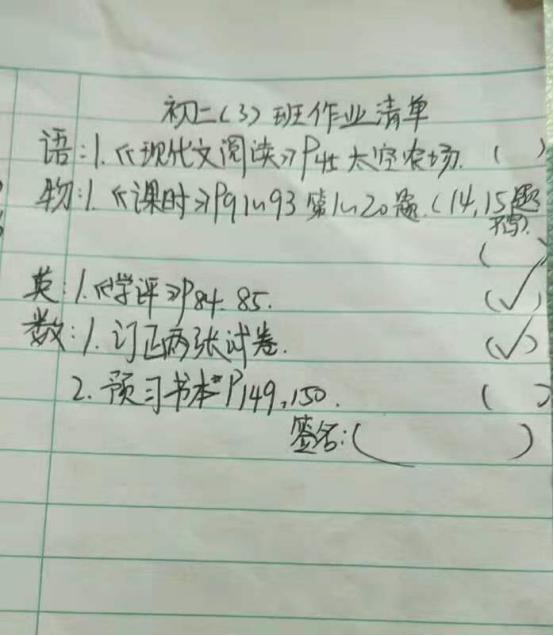 初二(3)班作业清单
语:1.《现代文阅读》P41 太空农场. ( )
物:1.《课时》P91~93 第1~20题.(14,15题
不写).
( )
英:1.《学评》P84.85. (✓)
数:1.订正两张试卷. (✓)
2.预习书本P149,150. ( )
签名:( )